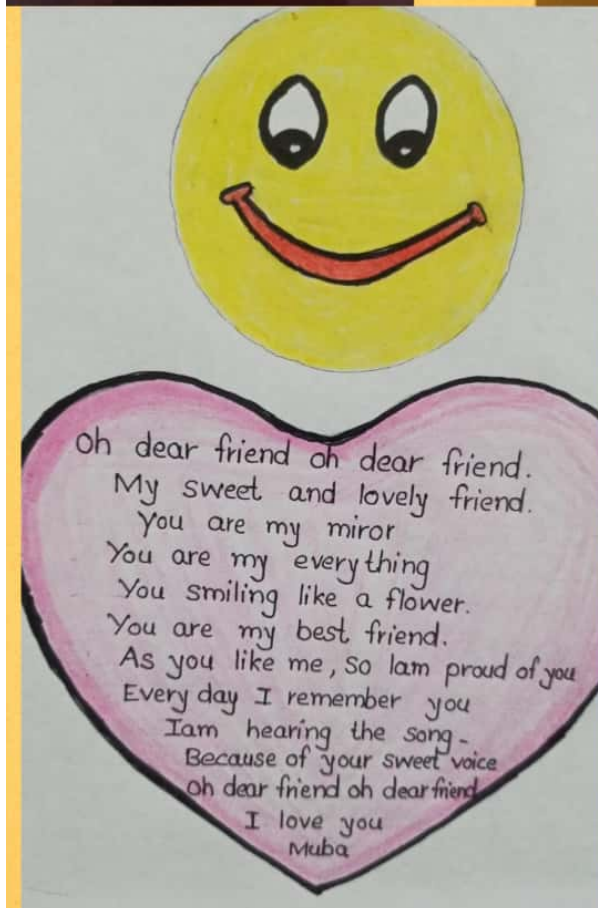 Oh dear friend oh dear friend.
My sweet and lovely friend.
You are my miror
You are my everything
You smiling like a flower.
You are my best friend.
As you like me, So Iam proud of you
Every day I remember you
Iam hearing the song-
Because of your sweet voice
Oh dear friend oh dear friend
I love you
Muba